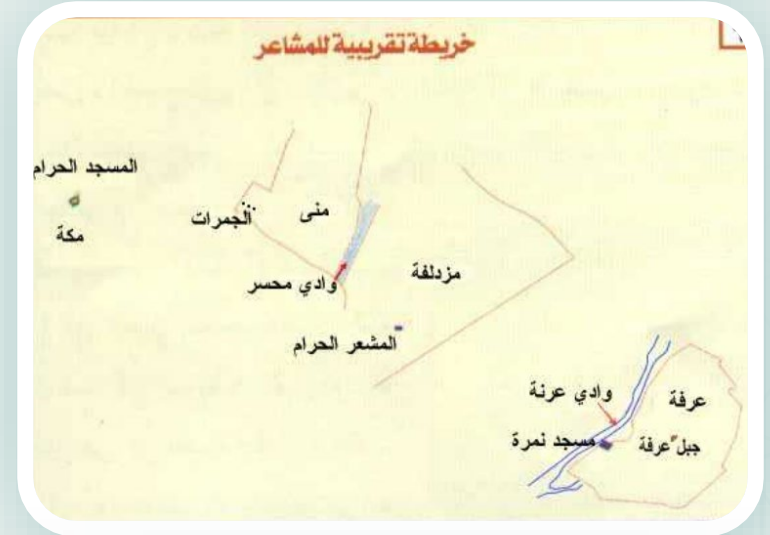 خريطة تقريبية للمشاعر
المسجد الحرام
مكة
الجمرات
منى
وادي محسر
مزدلفة
المشعر الحرام
وادي عرنة
عرفة
مسجد نمرة
جبل عرفة